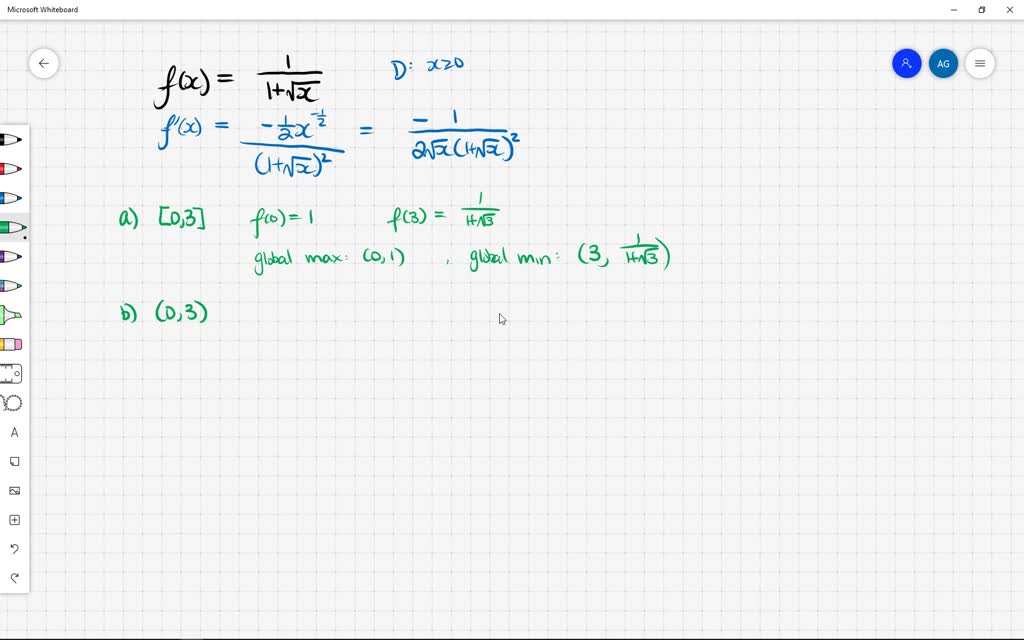 Microsoft Whiteboard
f(x) = 1/(1+√x) D: x≥0
AG
f'(x) = (-1/2 x^(-1/2))/(1+√x)^2 = - 1/(2√x(1+√x)^2)
a) [0,3] f(0) = 1 f(3) = 1/(1+√3)
global max: (0,1) , global min: (3, 1/(1+√3))
b) (0,3)
A